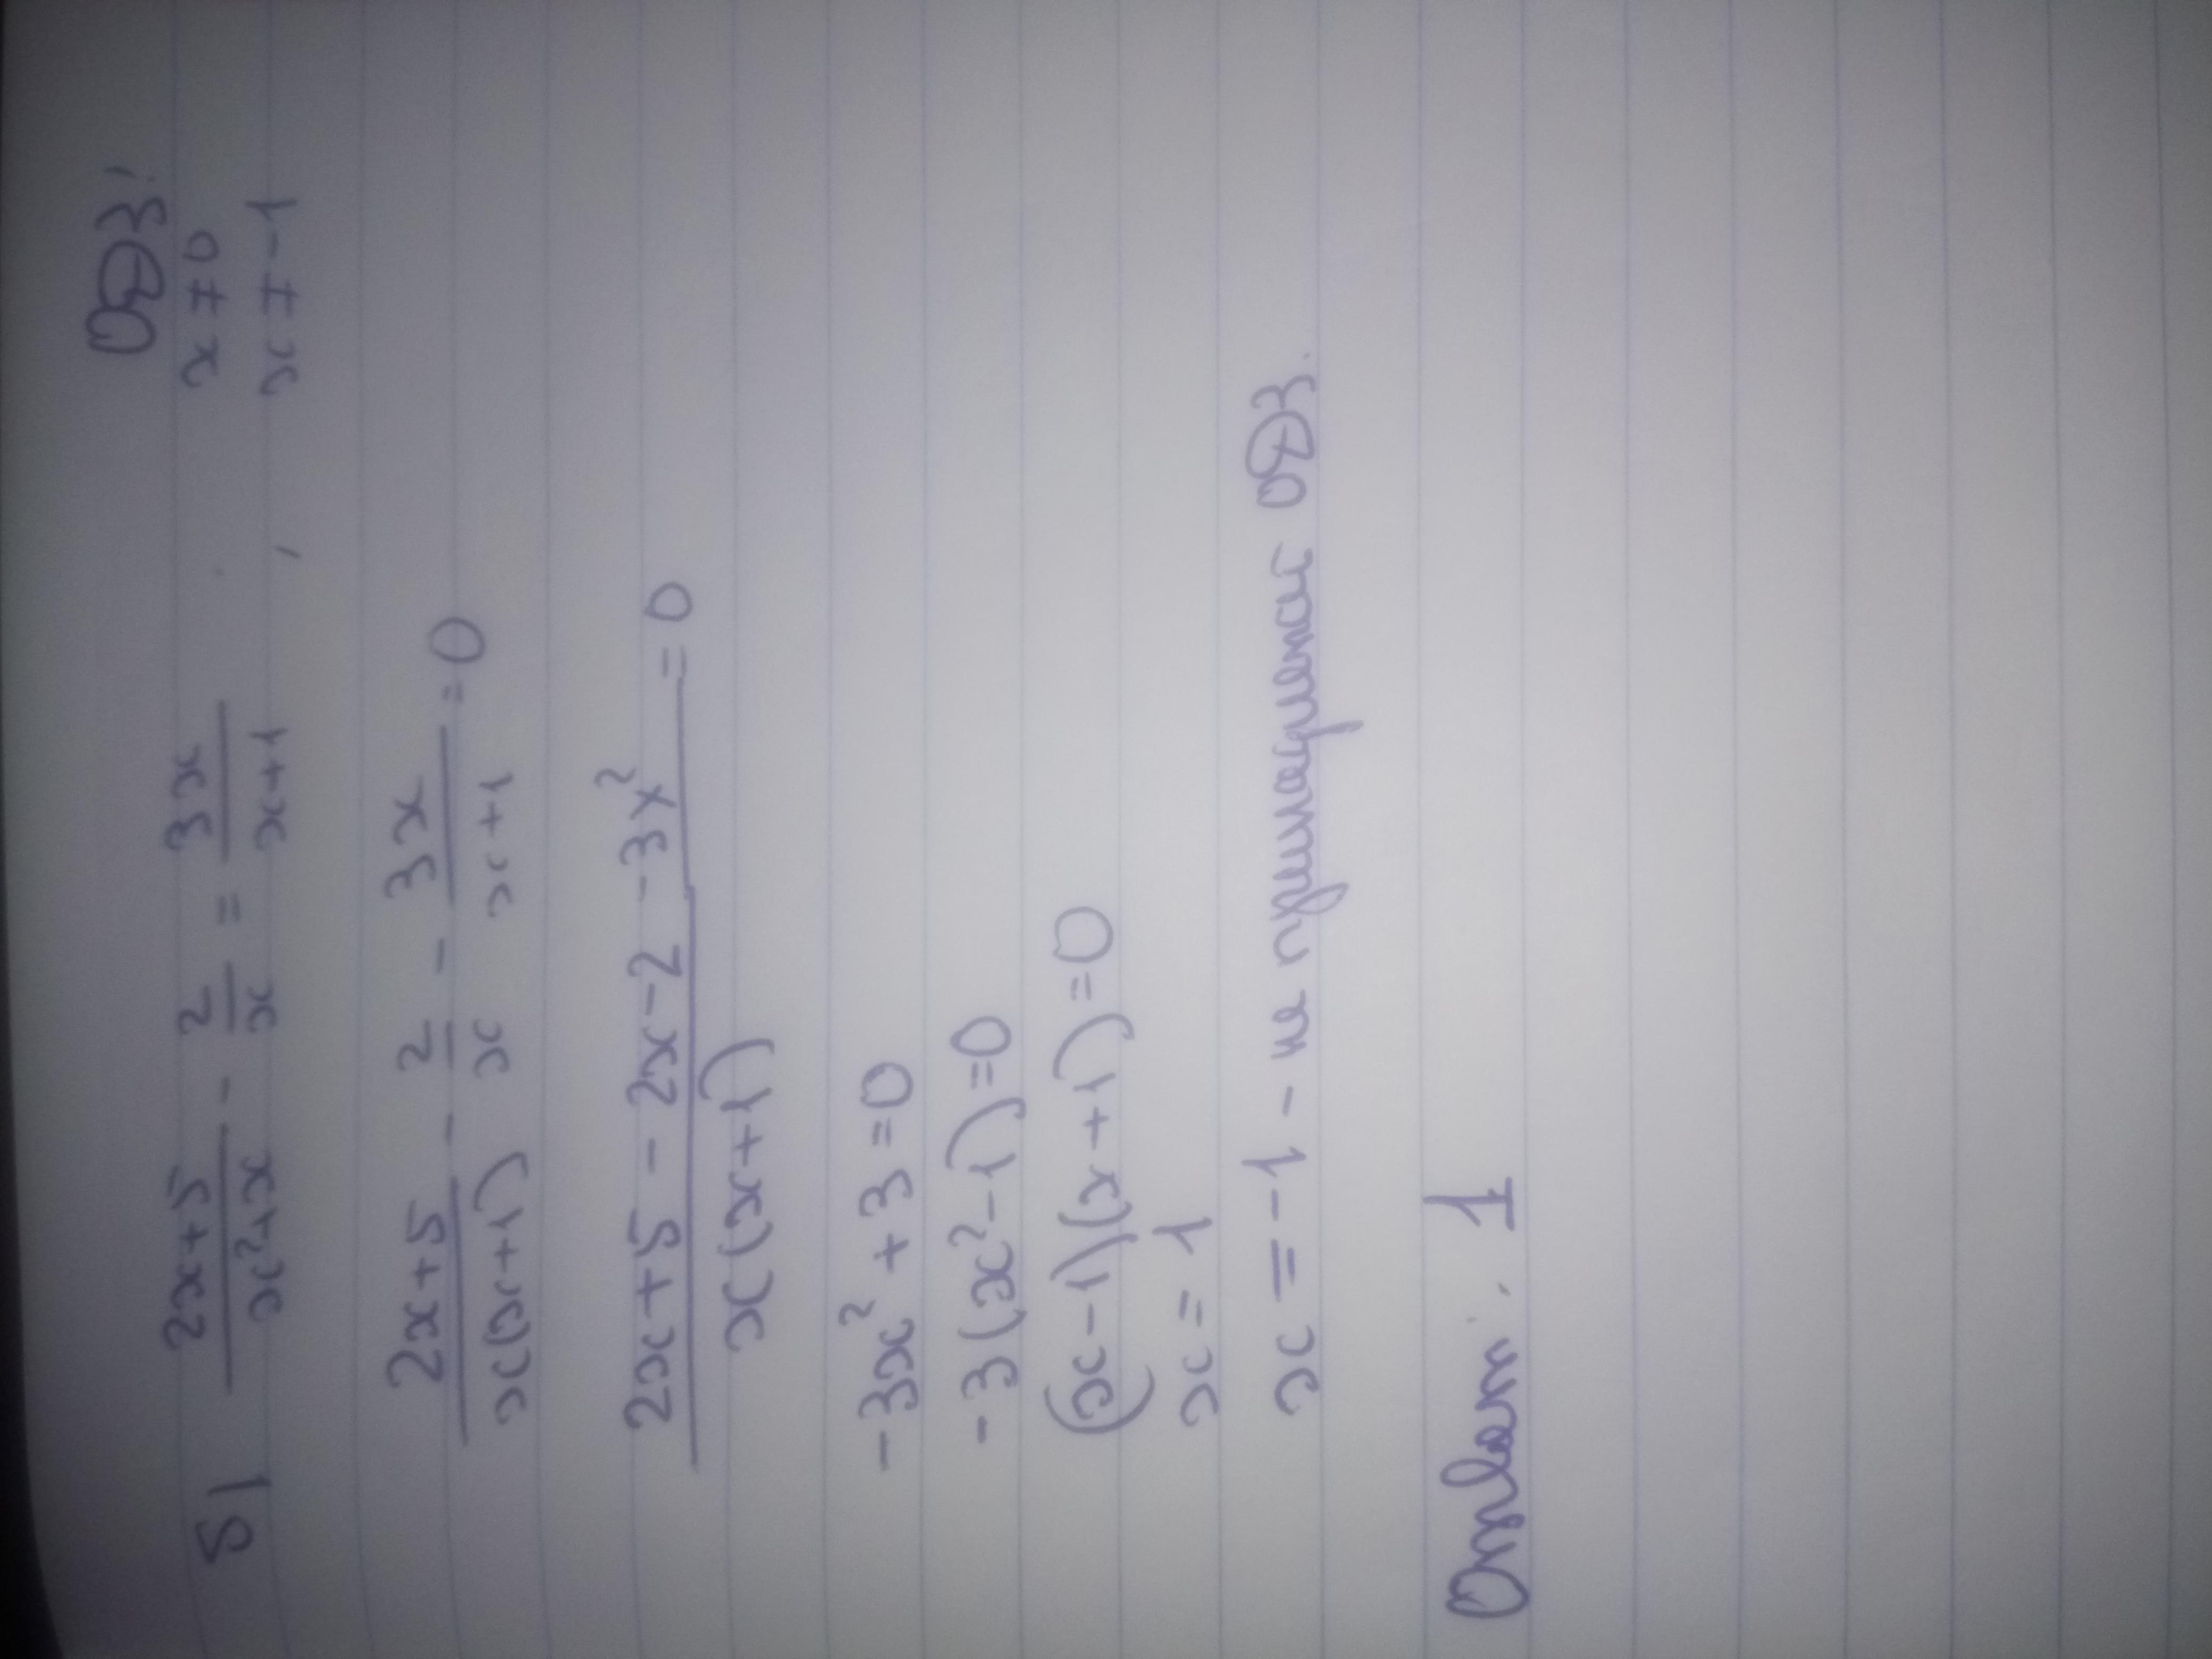 ОДЗ:
б) (2x+5)/(x²+x) - 2/x = 3x/(x+1)
x ≠ 0
x ≠ -1
(2x+5)/(x(x+1)) - 2/x - 3x/(x+1) = 0
(2x+5 - 2x-2 -3x²)/(x(x+1)) = 0
-3x²+3=0
-3(x²-1)=0
(x-1)(x+1)=0
x=1
x=-1 - не принадлежит ОДЗ.
Ответ. 1